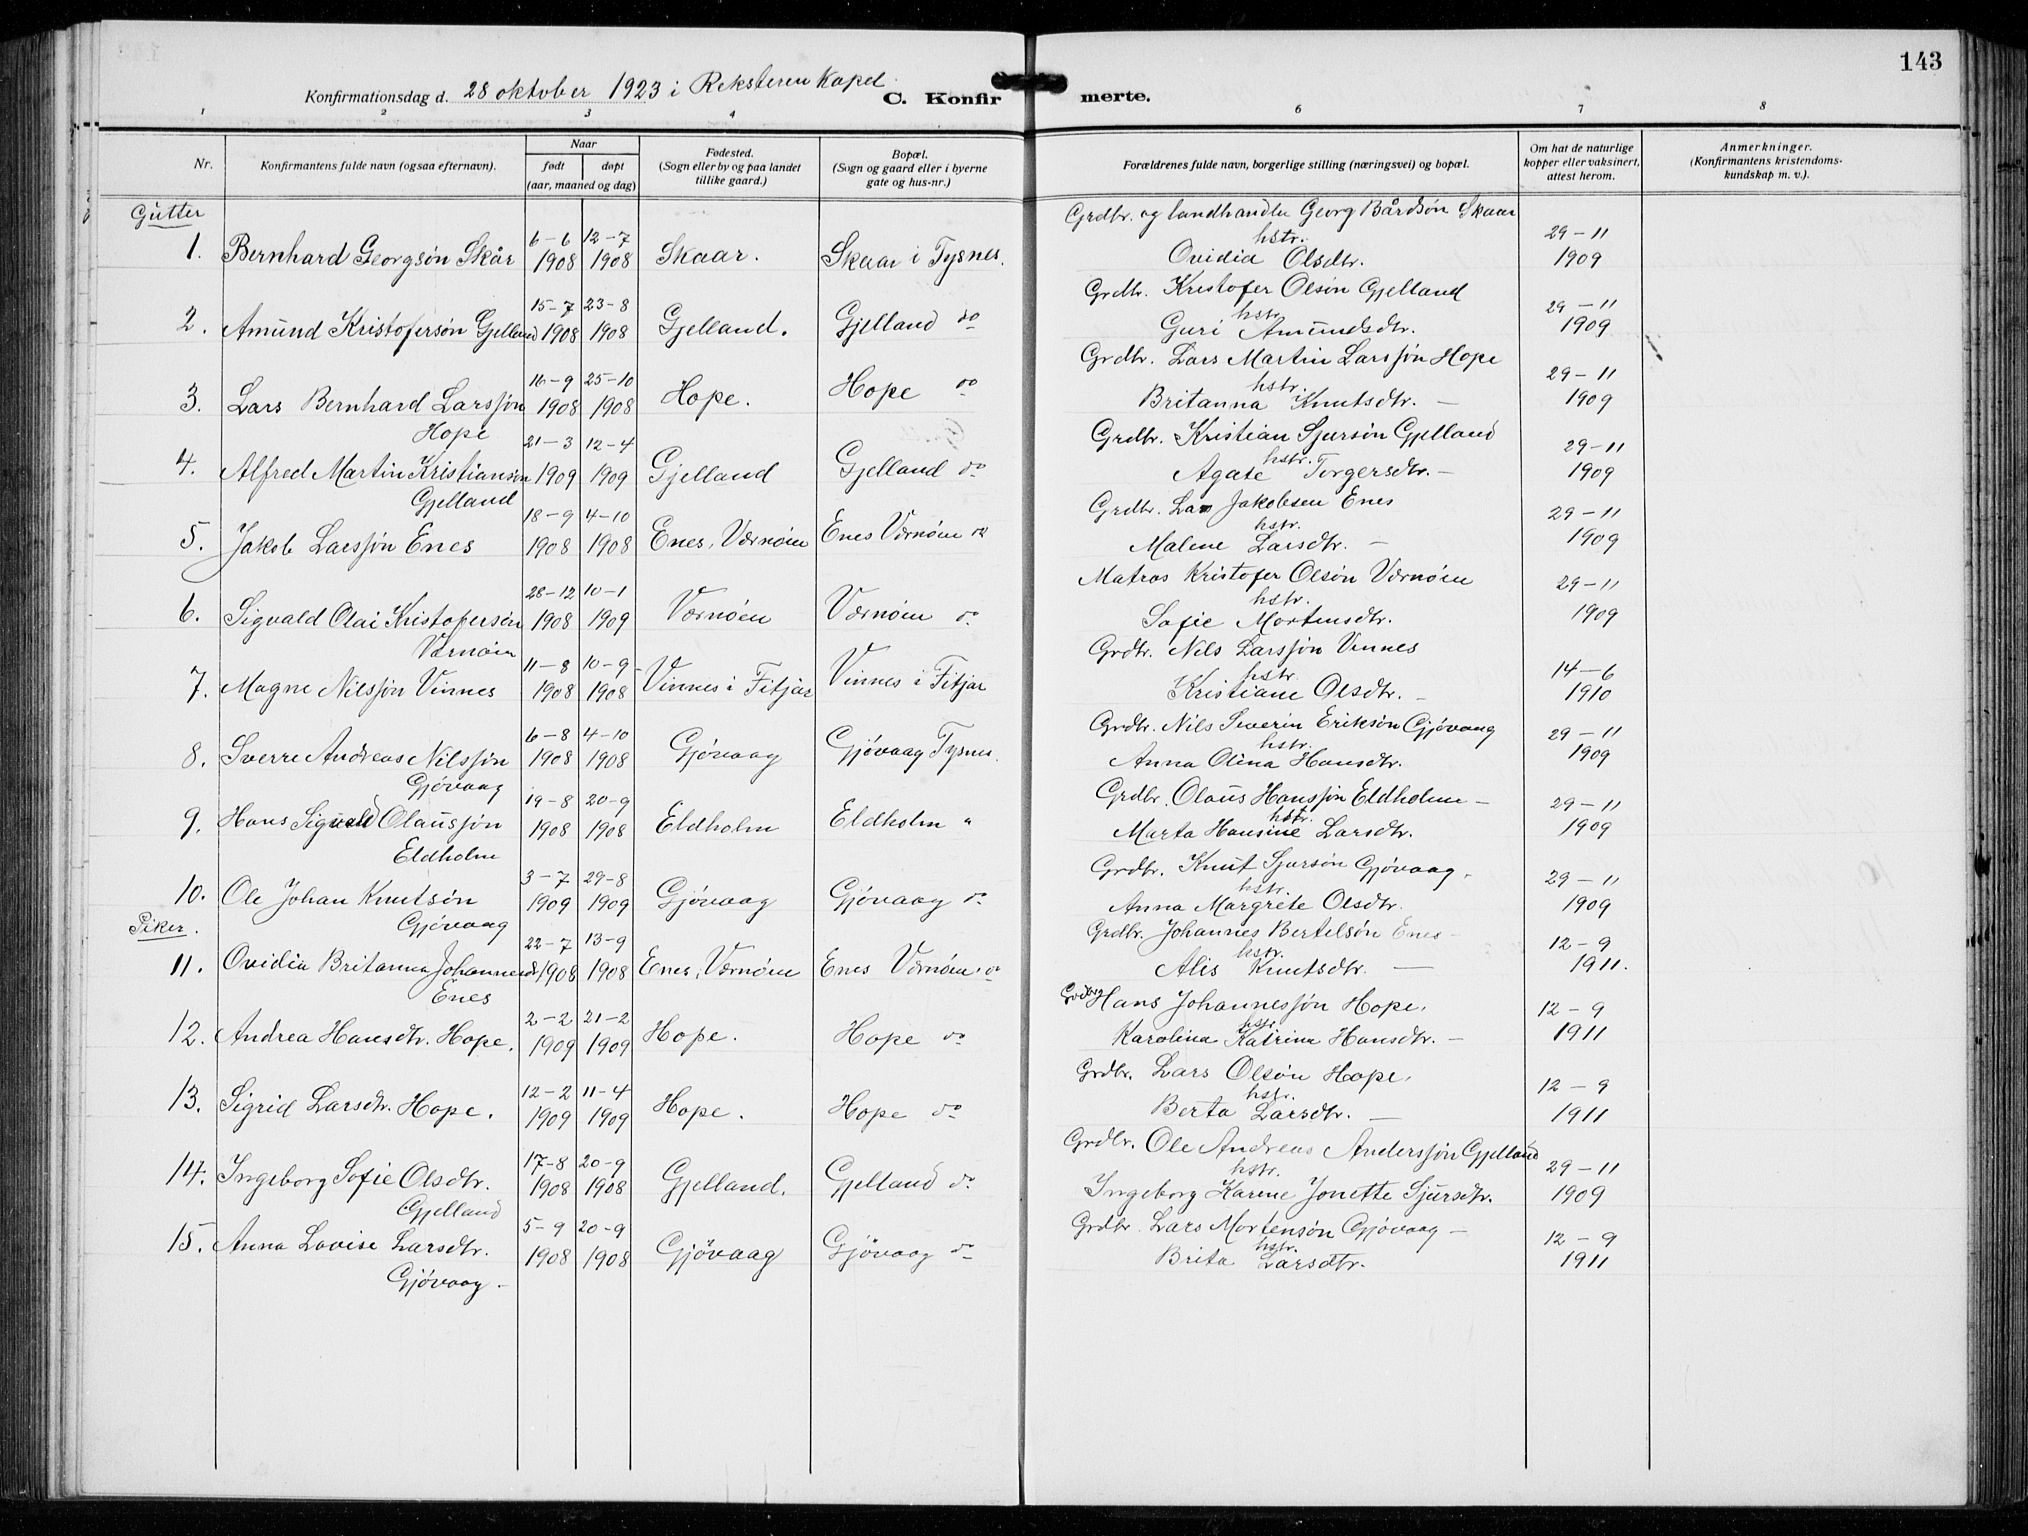 143
Konfirmationsdag d. 28 oktober 1923 i Reksteren Kapel C. Konfirmerte.
1 2 3 4 6 7 8
Nr. Konfirmantens fulde navn (ogsaa efternavn). Naar født døpt (aar, maaned og dag) Fødested. (Sogn eller by og paa landet tillike gaard.) Bopæl. (Sogn og gaard eller i byerne gate og hus-nr.) Forældrenes fulde navn, borgerlige stilling (næringsvei) og bopæl. Om hat de naturlige kopper eller vaksinert, attest herom. Anmerkninger. (Konfirmantens kristendoms-kundskap m. v.).
Gutter
Grdbr. og landhandler Georg Bårdsøn Skaar
1. Bernhard Georgsøn Skår 6-6 1908 12-7 1908 Skaar. Skaar i Tysnes. hstr. Ovidia Olsdtr. 29-11 1909
Grdbr. Kristofer Olsøn Gjelland
2. Amund Kristofersøn Gjelland 15-7 1908 23-8 1908 Gjelland. Gjelland do hstr. Guri Amundsdtr. 29-11 1909
Grdbr. Lars Martin Larssøn Hope
3. Lars Bernhard Larssøn Hope 16-9 1908 25-10 1908 Hope. Hope do hstr. Britanna Knutsdtr. — 29-11 1909
Grdbr. Kristian Sjursøn Gjelland
4. Alfred Martin Kristiansøn Gjelland 21-3 1909 12-4 1909 Gjelland Gjelland do hstr. Agate Torgersdtr. — 29-11 1909
Grdbr. Lars Jakobsen Enes
5. Jakob Larssøn Enes 18-9 1908 4-10 1908 Enes, Værnøen Enes Værnøen do hstr. Malene Larsdtr. — 29-11 1909
Matros Kristofer Olsøn Værnøen
6. Sigvald Olai Kristofersøn Værnøen 28-12 1908 10-1 1909 Værnøen Værnøen do hstr. Sofie Mortensdtr. 29-11 1909
Grdbr. Nils Larssøn Vinnes
7. Magne Nilssøn Vinnes 11-8 1908 10-9 1908 Vinnes i Fitjar Vinnes i Fitjar hstr. Kristiane Olsdtr. — 14-6 1910
Grdbr. Nils Severin Eriksøn Gjøvaag
8. Sverre Andreas Nilssøn Gjøvaag 6-8 1908 4-10 1908 Gjøvaag Gjøvaag Tysnes. hstr. Anna Olina Hansdtr. 29-11 1909
Grdbr. Olaus Hanssøn Eldholm —
9. Hans Sigvald Olaussøn Eldholm 19-8 1908 20-9 1908 Eldholm Eldholm " hstr. Marta Hansine Larsdtr. 29-11 1909
Grdbr. Knut Sjursøn Gjøvaag.
10. Ole Johan Knutsøn Gjøvaag 3-7 1909 29-8 1909 Gjøvaag Gjøvaag do hstr. Anna Margrete Olsdtr. 29-11 1909
Piker.
Grdbr. Johannes Bertelsøn Enes —
11. Ovidia Britanna Johannesdtr Enes 22-7 1908 13-9 1908 Enes, Værnøen Enes Værnøen do hstr. Alis Knutsdtr. — 12-9 1911.
Grdbr. Hans Johannessøn Hope.
12. Andrea Hansdtr. Hope. 2-2 1909 21-2 1909 Hope. Hope do hstr. Karolina Katrina Hansdtr. — 12-9 1911
Grdbr. Lars Olsøn Hope.
13. Sigrid Larsdtr. Hope. 12-2 1909 11-4 1909 Hope. Hope do hstr. Berta Larsdtr. — 12-9 1911
Grdbr. Ole Andreas Anderssøn Gjelland
14. Ingeborg Sofie Olsdtr. Gjelland 17-8 1908 20-9 1908 Gjelland. Gjelland do hstr. Ingeborg Karene Jonette Sjursdtr. 29-11 1909
Grdbr. Lars Mortensøn Gjøvaag —
15. Anna Lovise Larsdtr. Gjøvaag. 5-9 1908 20-9 1908 Gjøvaag Gjøvaag do hstr. Brita Larsdtr. 12-9 1911